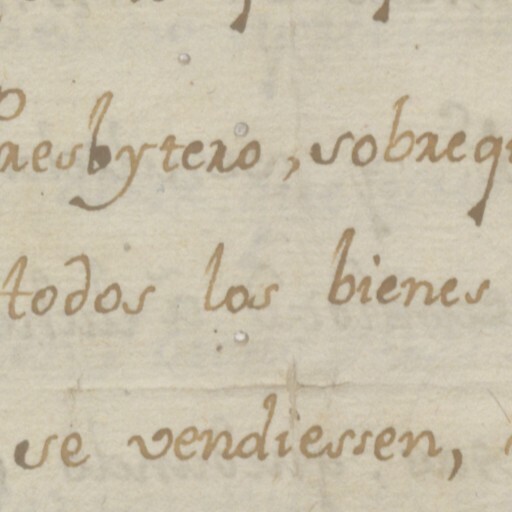 Presbytero, sobrequ
todos los bienes
se vendiessen,